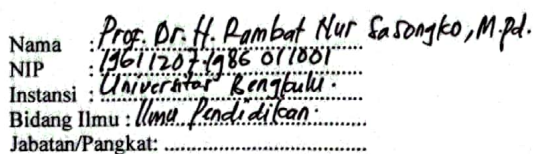 Nama : Prof. Dr. H. Rambat Nur Sasongko, M.Pd.
NIP : 19611207 198601 1001
Instansi : Universitas Bengkulu.
Bidang Ilmu : Ilmu Pendidikan
Jabatan/Pangkat: ................................